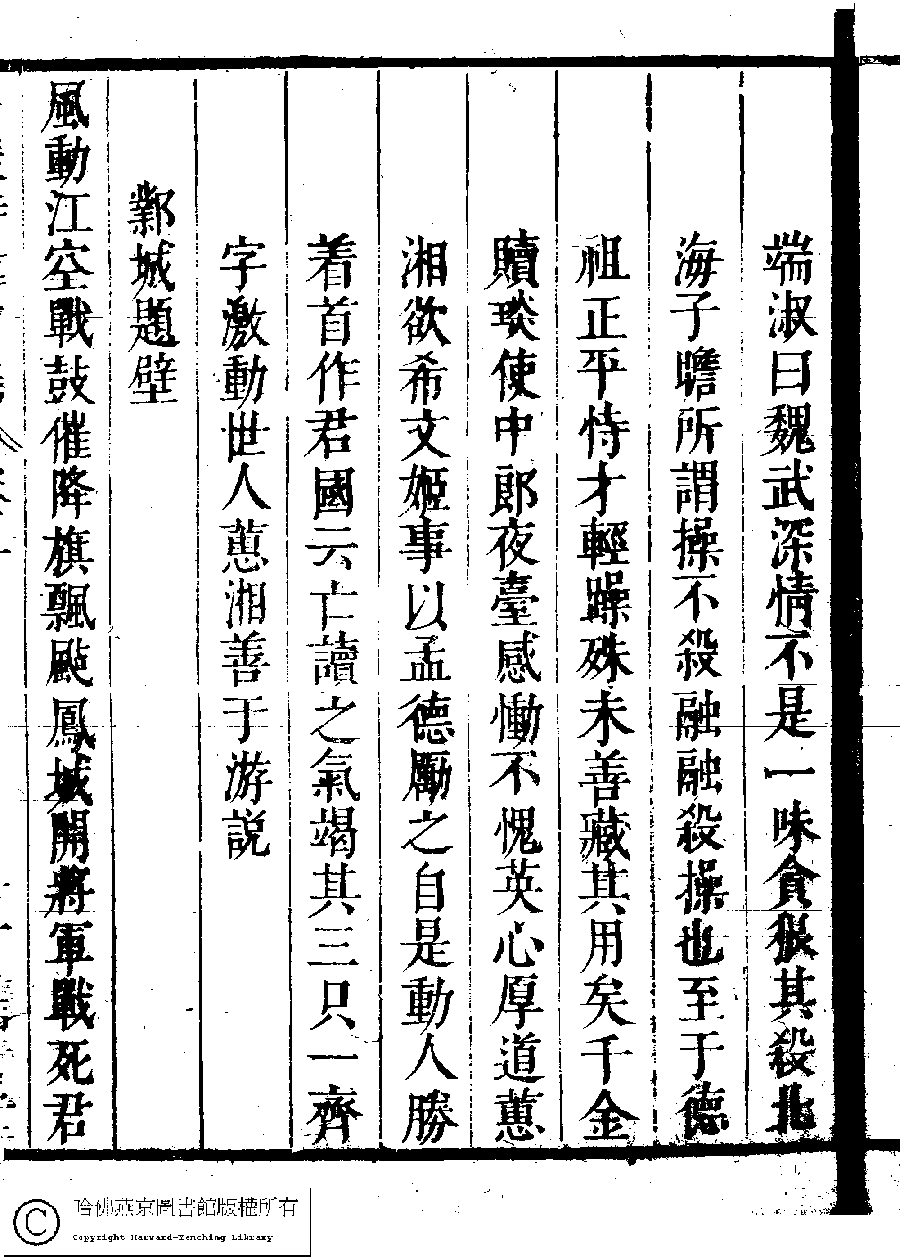 端淑曰魏武深情不是一味貪狠其殺北
海子瞻所謂操不殺融融殺操也至于德
祖正平恃才輕躁殊未善藏其用矣千金
贖琰使中郎夜臺感慟不愧英心厚道蕙
湘欲希文姬事以孟德勵之自是動人勝
着首作君國云亡讀之氣竭其三只一齊
字激動世人蕙湘善于游説
鄴城題壁
風動江空戰鼓催降旗飄颭鳳城開將軍戰死君
哈佛燕京圖書館版權所有
Copyright Harvard-Yenching Library